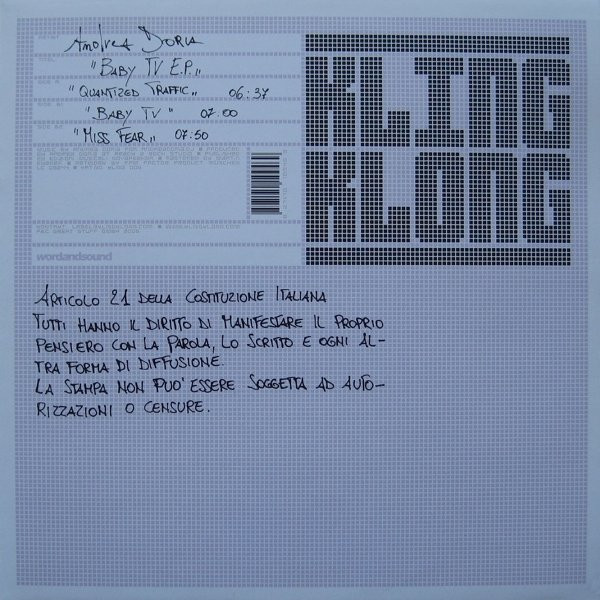 Andrea Doria
"BABY TV E.P.„
"QUANTIZED TRAFFIC„ 06:37
"BABY TV" 07.00
"MISS FEAR„ 07:50
KLING
KLONG
wordandsound
ARTICOLO 21 DELLA COSTITUZIONE ITALIANA
TUTTI HANNO IL DIRITTO DI MANIFESTARE IL PROPRIO
PENSIERO CON LA PAROLA, LO SCRITTO E OGNI AL-
TRA FORMA DI DIFFUSIONE.
LA STAMPA NON PUO' ESSERE SOGGETTA AD AUTO-
RIZZAZIONI O CENSURE.